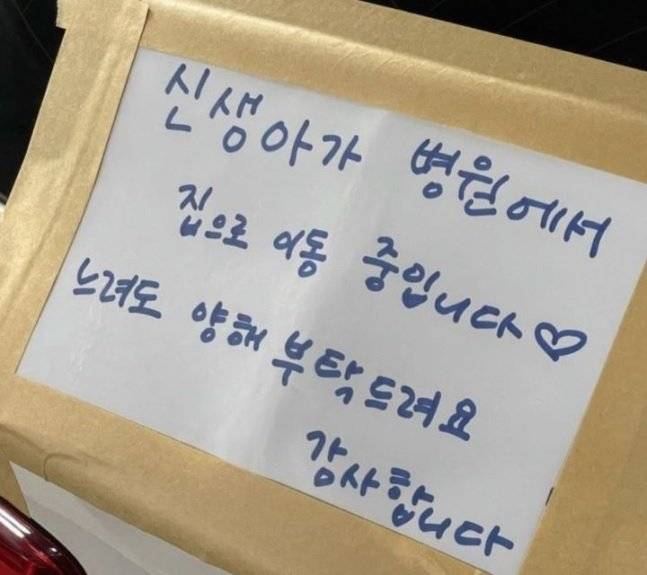 신생아가 병원에서
집으로 이동 중입니다♡
느려도 양해 부탁드려요
감사합니다